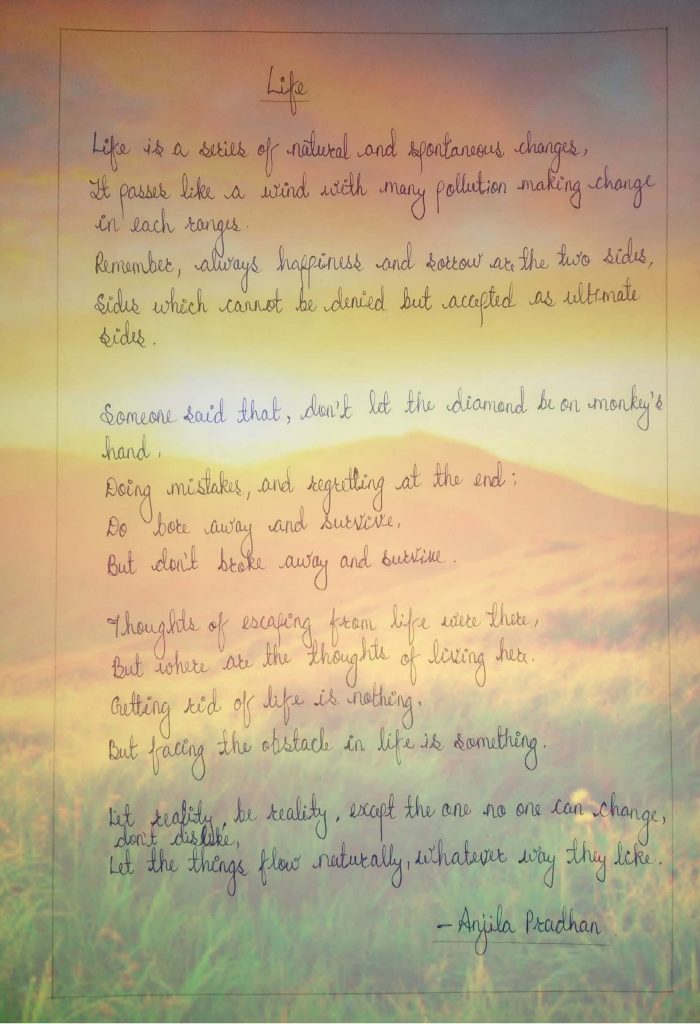 Life
Life is a series of natural and spontaneous changes,
It passes like a wind with many pollution making change
in each ranges.
Remember, always happiness and sorrow are the two sides,
Sides which cannot be denied but accepted as ultimate
sides.
Someone said that, don't let the diamond be on monkey's
hand,
Doing mistakes, and regretting at the end;
Do bore away and survive,
But don't broke away and survive.
Thoughts of escaping from life were there,
But where are the thoughts of living here.
Getting rid of life is nothing,
But facing the obstacle in life is something.
Let reality, be reality, except the one no one can change,
don't dislike,
Let the things flow naturally, whatever way they like.
- Anjila Pradhan